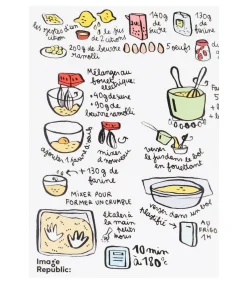 les zestes d'un
citron
+ le jus
de 2 citrons
140g
de sucre
130g
de farine
200g de beurre
ramolli
5 oeufs
Mélanger au
fouet électrique
• 40g de sucre
• 90g de
beurre ramolli
ajouter 1 jaune d'oeuf
mixer
à nouveau
verser
le jus dans le bol
en fouettant
+ 130g de
farine
MIXER POUR
FORMER UN CRUMBLE
verser dans un bol
plastifié
AU
FRIGO
1H
étaler à
la main
petits
trous
10 min
à 180°c
Image
Republic: